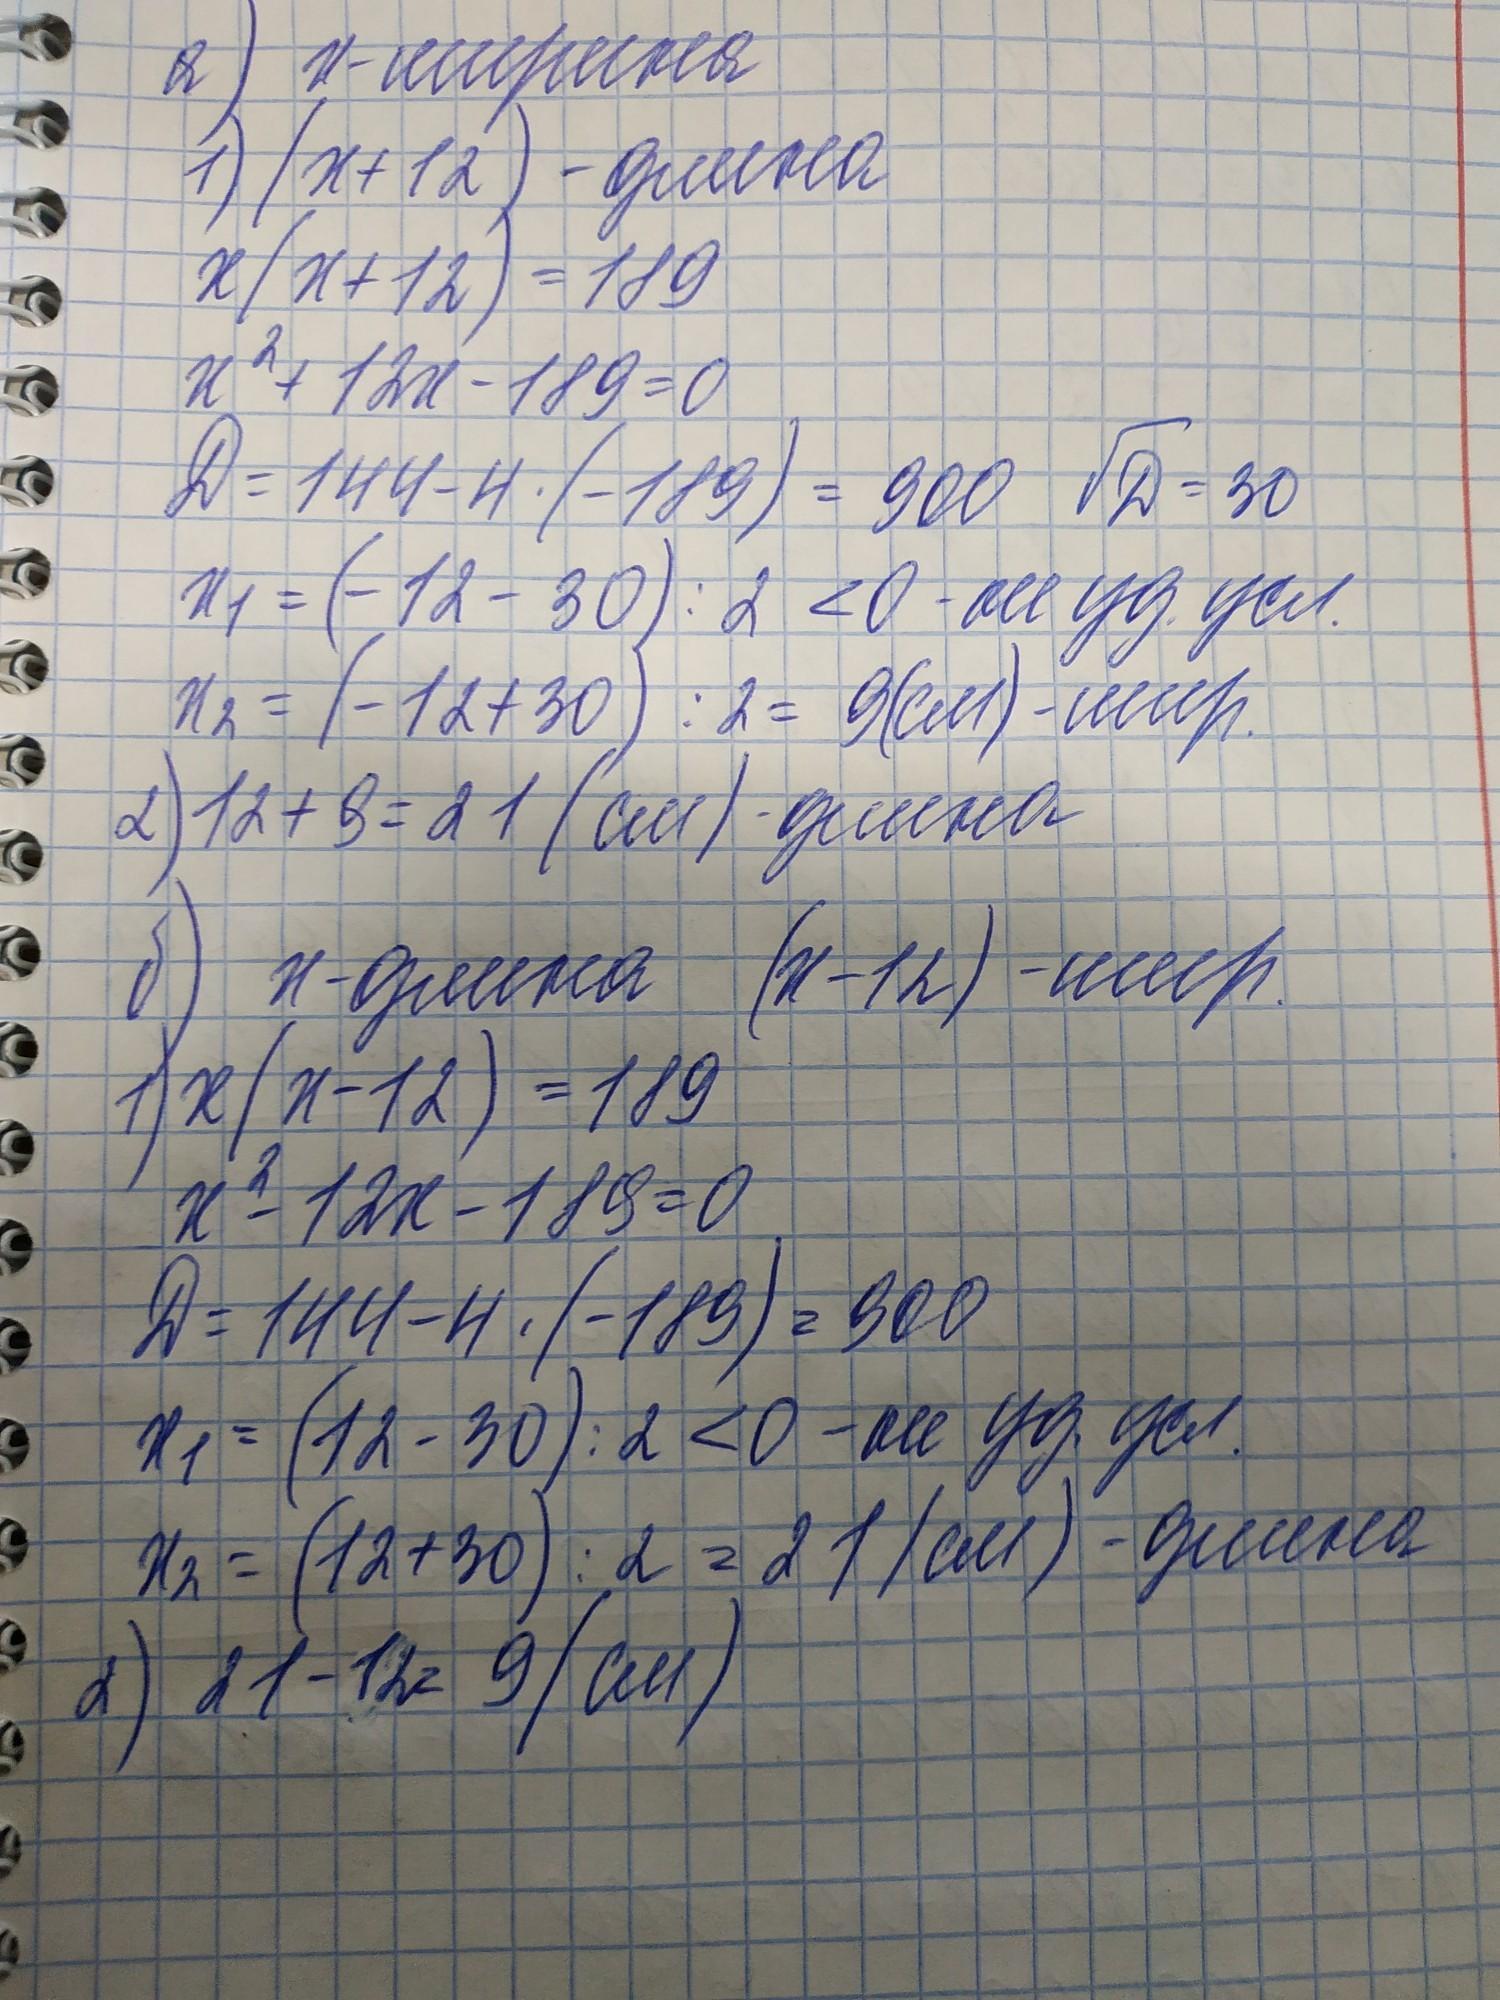 а) x - ширина
1) (x + 12) - длина
x(x + 12) = 189
x² + 12x - 189 = 0
D = 144 - 4 · (-189) = 900 √D = 30
x₁ = (-12 - 30) : 2 < 0 - не уд. усл.
x₂ = (-12 + 30) : 2 = 9(см) - шир.
2) 12 + 9 = 21 (см) - длина
б) x - длина (x - 12) - шир.
1) x(x - 12) = 189
x² - 12x - 189 = 0
D = 144 - 4 · (-189) = 900
x₁ = (12 - 30) : 2 < 0 - не уд. усл.
x₂ = (12 + 30) : 2 = 21 (см) - длина
2) 21 - 12 = 9 (см)